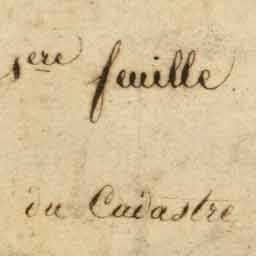 1ere feuille.
du Cadastre